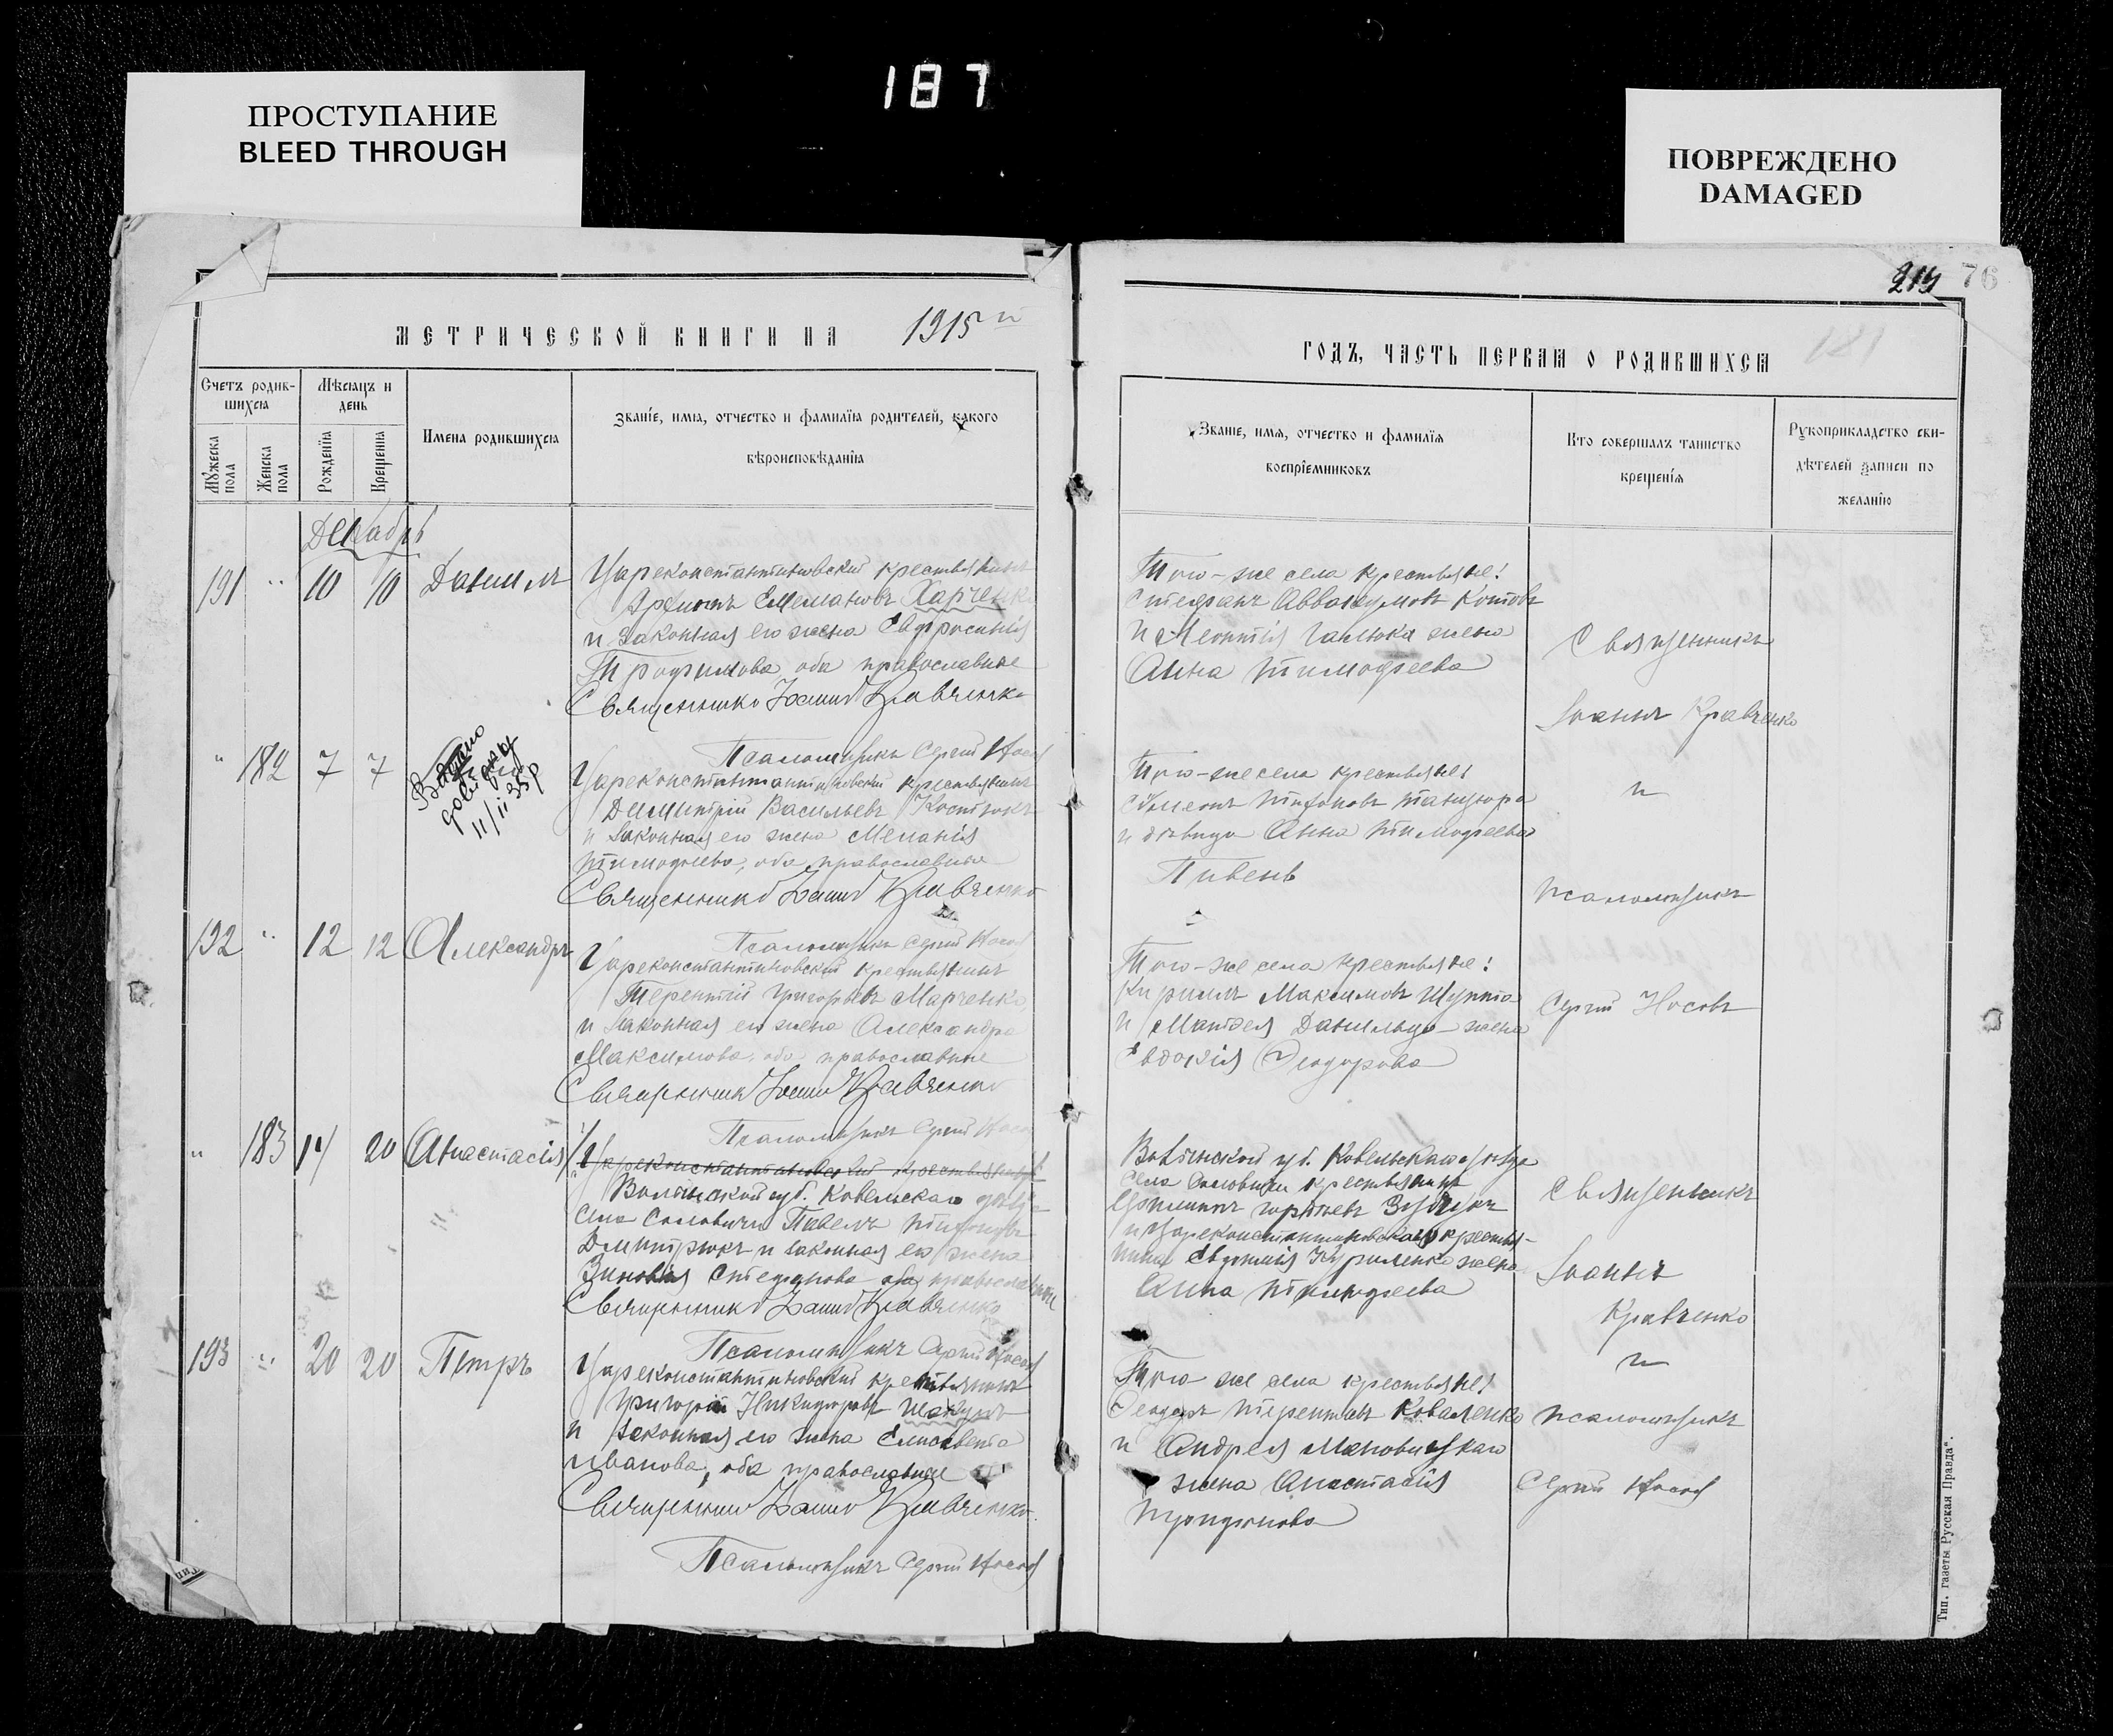 187
ПРОСТУПАНИЕ
BLEED THROUGH
ПОВРЕЖДЕНО
DAMAGED
76
МЕТРИЧЕСКОЙ КНИГИ НА 1915 й
ГОДЪ, ЧАСТЬ ПЕРВАЯ О РОДИВШИХСЯ
Счетъ родив-
шихся
Мѣсяцъ и
день
Мужеска
пола
Женска
пола
Рожденїя
Крещенїя
Имена родившихся
Званїе, имя, отчество и фамилїя родителей, какого
вѣроисповѣданїя
Званїе, имя, отчество и фамилїя
воспрїемниковъ
Кто совершалъ таинство
крещенїя
Рукоприкладство сви-
дѣтелей записи по
желанїю
Декабрь
191 " 10 10 Даниилъ
Цареконстантиновский крестьянинъ
Харченко
и законная его жена Евфросинія
Трофимова оба православные
Священникъ Іоаннъ Кравченко
Псаломщикъ Сергій Носовъ
Того-же села крестьяне:
Стефанъ Аввакумовъ Котовъ
и Леонтія жена
Анна Тимофеева
Священникъ
Іоаннъ Кравченко
" 182 7 7
Выдано
11/II 35 р
Цареконстантиновский крестьянинъ
Димитрій Васильевъ Костюкъ
и законная его жена Меланія
Тимофеева, оба православные
Священникъ Іоаннъ Кравченко
Псаломщикъ Сергій Носовъ
Того-же села крестьяне:
Симеонъ Тихоновъ Танцюра
и девица Анна Тимофеева
Пивень
"
псаломщикъ
192 " 12 12 Александръ
Цареконстантиновский крестьянинъ
Терентій Григорьевъ Марченко
и законная его жена Александра
Максимова, оба православные
Священникъ Іоаннъ Кравченко
Псаломщикъ Сергій Носовъ
Того-же села крестьяне:
Кириллъ Максимовъ Шуппа
и жена
Евдокія Феодорова
Сергій Носовъ
" 183 14 20 Анастасія
Цареконстантиновский крестьянинъ
Волынской губ. Ковельскаго уѣзда
села Соловичи Павелъ Тихоновъ
Дмитрюкъ и законная его жена
Зиновія Стефанова оба православные
Священникъ Іоаннъ Кравченко
Псаломщикъ Сергій Носовъ
Волынской губ. Ковельскаго уѣзда
села Соловичи крестьянинъ
и Цареконстантиновскаго крестья-
нина Евфимія Куриленко жена
Анна Тимофеева
Священникъ
Іоаннъ
Кравченко
193 " 20 20 Петръ
Цареконстантиновский крестьянинъ
Григорій Никифоровъ Шакунъ
и законная его жена Елисавета
Иванова, оба православные
Священникъ Іоаннъ Кравченко
Псаломщикъ Сергій Носовъ
Того же села крестьяне:
Феодоръ Терентьевъ Коваленко
и Андрея Мановицкаго
жена Анастасія
Трифонова
"
псаломщикъ
Сергій Носовъ
Тип. газеты Русская Правда".